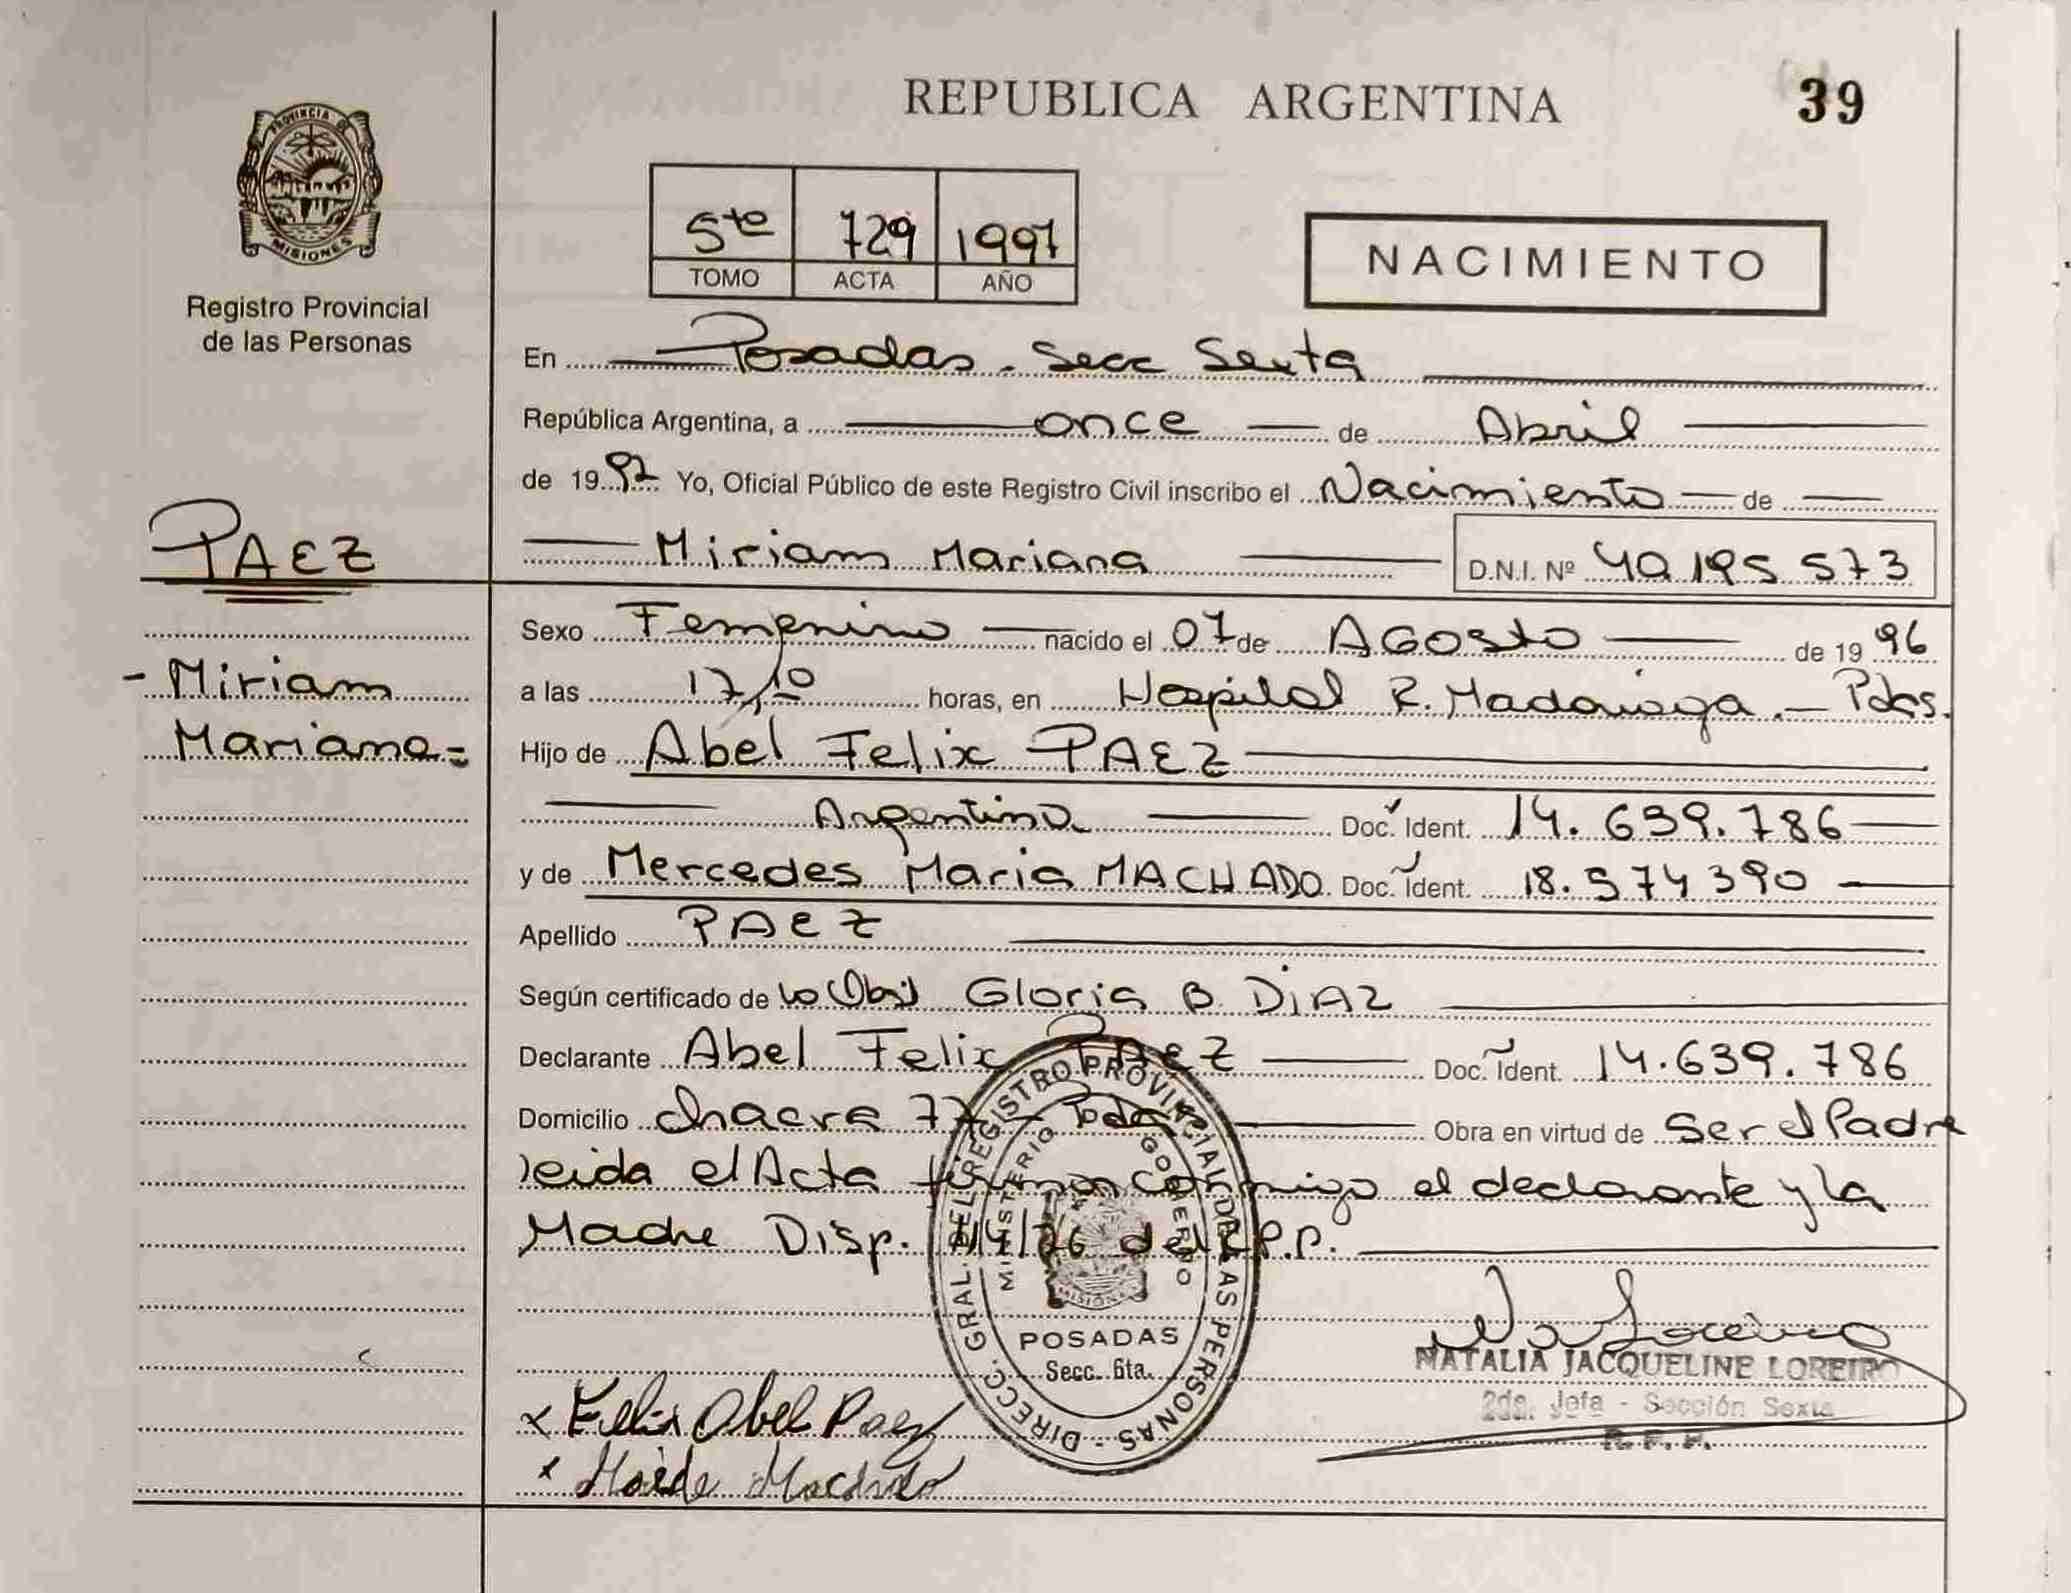 REPUBLICA ARGENTINA
39
PROVINCIA DE
MISIONES
Registro Provincial
de las Personas
5te 729 1997
TOMO ACTA AÑO
NACIMIENTO
En Posadas - Secc Sexta
República Argentina, a once de Abril
de 1997 Yo, Oficial Público de este Registro Civil inscribo el Nacimiento de
PAEZ
Miriam Mariana D.N.I. Nº 40.195.573
Sexo Femenino nacido el 07 de AGOSTO de 1996
- Miriam
a las 17,10 horas, en Hospital R. Madariaga.- Pdas.
Mariana=
Hijo de Abel Felix PAEZ
Argentino Doc. Ident. 14.639.786
y de Mercedes Maria MACHADO Doc. Ident. 18.574390
Apellido PAEZ
Según certificado de Gloria B. DIAZ
Declarante Abel Felix PAEZ Doc. Ident. 14.639.786
Domicilio chacra 77 - Pdas Obra en virtud de Ser el Padre
leida el Acta firman conmigo el declarante y la
Madre Disp. del R.P.P.
DIRECC. GRAL. DEL REGISTRO PROVINCIAL DE LAS PERSONAS -
MINISTERIO GOBIERNO
MISIONES
POSADAS
Secc. 6ta.
NATALIA JACQUELINE LOREIRO
2da. Jefa - Sección Sexta
R. P. P.
x Felix Abel Paez
x Machado